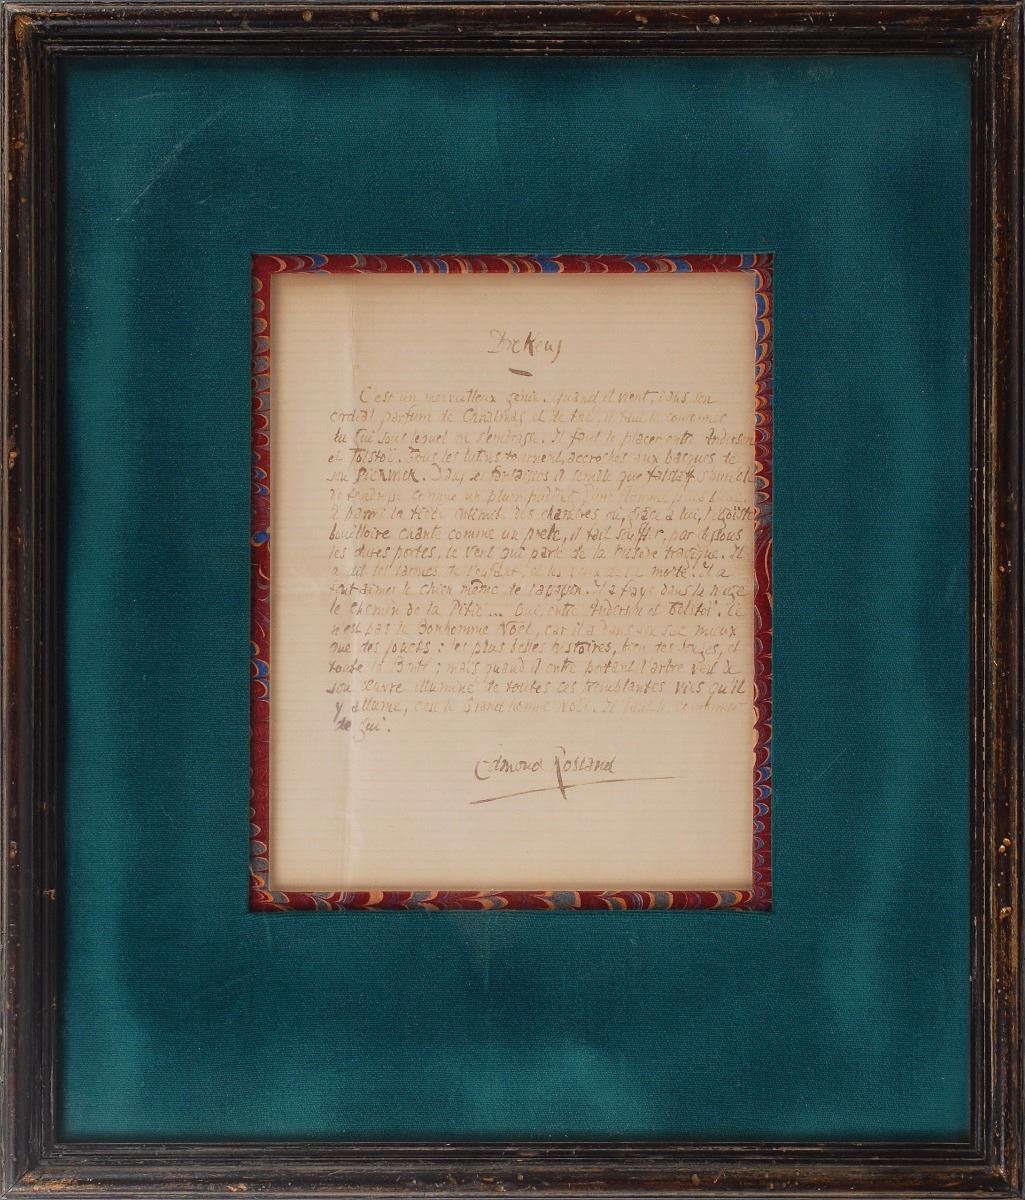 Dickens
C'est un merveilleux génie. Quand il vient, dans son
cordial parfum de Christmas et de thé, il faut le couronner
du gui sous lequel on s'embrasse. Il faut le placer entre Andersen
et Tolstoï. Tous les lutins tournent, accrochés aux basques de
son Pickwick. Dans ses fantaisies il semble que Falstaff
de tendresse comme un plum-pudding d'une flamme
à parmi la tiède intimité des chambres où, grâce à lui, l'égoïste
bouilloire chante comme un poète, il fait souffler, par dessous
les dures portes, le vent qui parle de la misère tragique. Il
a dit les larmes de l'enfant, et les yeux de la morte. Il a
fait aimer le chien même de l'assassin. Il a frayé dans la neige
le chemin de la Pitié... Oui, entre Andersen et Tolstoï. Ce
n'est pas le Bonhomme Noël, car il a dans son sac mieux
que des jouets : les plus belles histoires, bien des songes, et
toute la Bonté ; mais quand il entre portant l'arbre vert de
son œuvre illuminé de toutes ces tremblantes vies qu'il
y allume, c'est le Grand homme Noël. Il faut le couronner
de gui.
Edmond Rostand